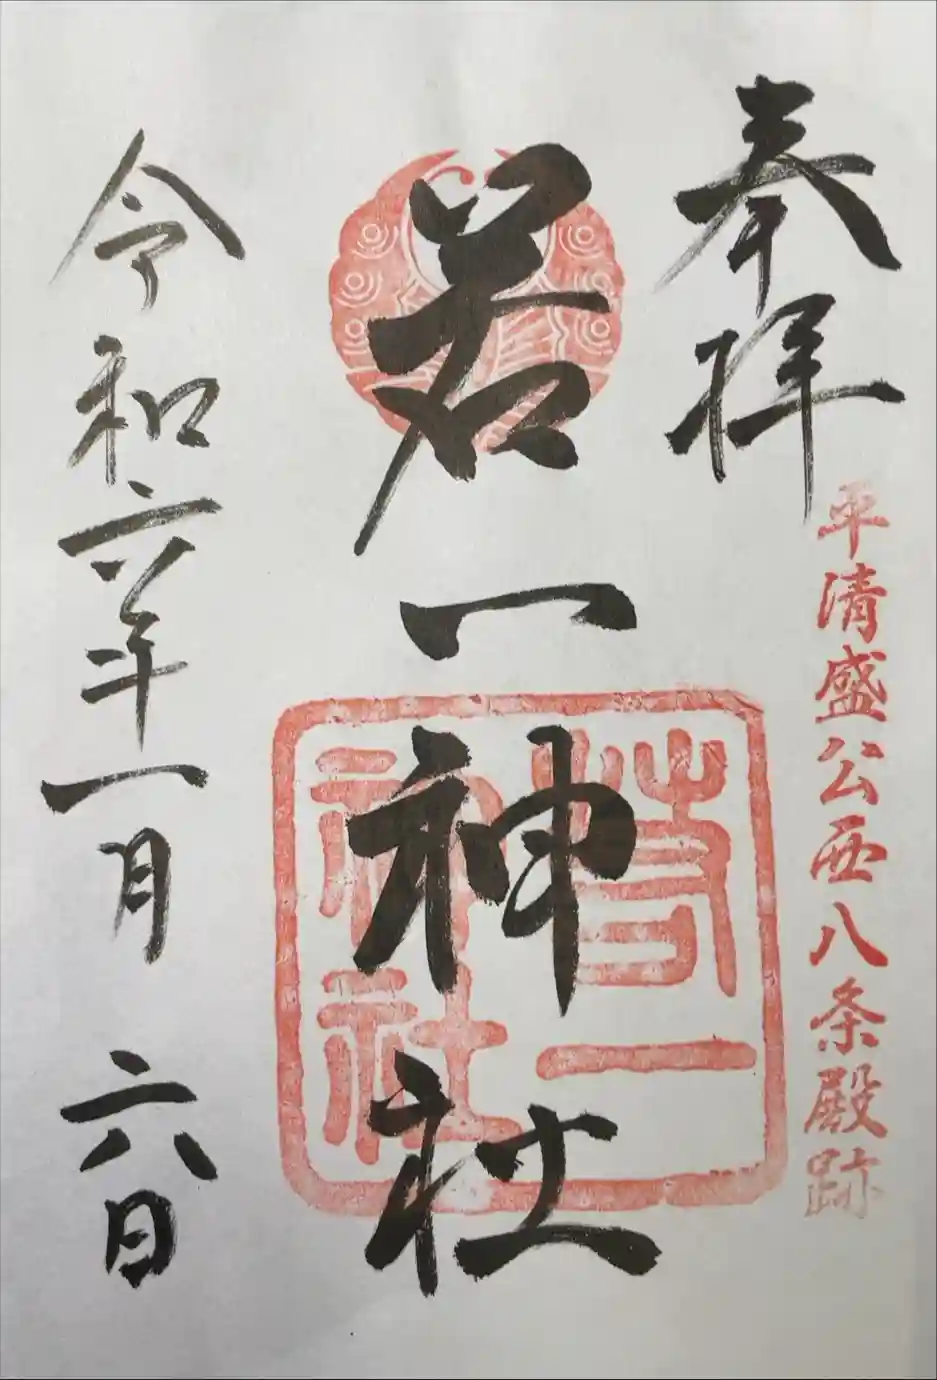 奉拝
平清盛公西八条殿跡
若一神社
若一
神社
令和六年一月六日